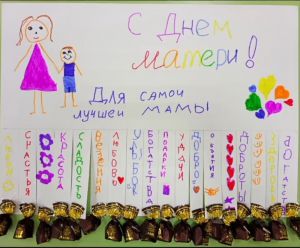 С Днем
матери!
Для самой
лучшей мамы
счастья
красота
сладость
везения
любовь
улыбок
богатства
подарки
удачи
добро
объятия
доброты
здоровья
богатства